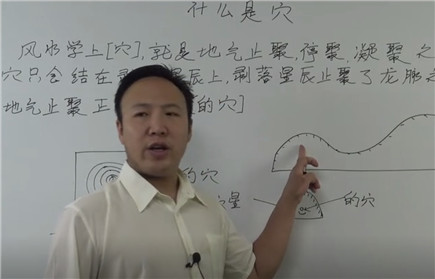 什么是穴
风水学上[穴],就是地气止聚,停聚,凝聚之
穴只会结在 星辰上,剥落星辰止聚了龙脉之
地气止聚正 的穴]
的穴
星
的穴